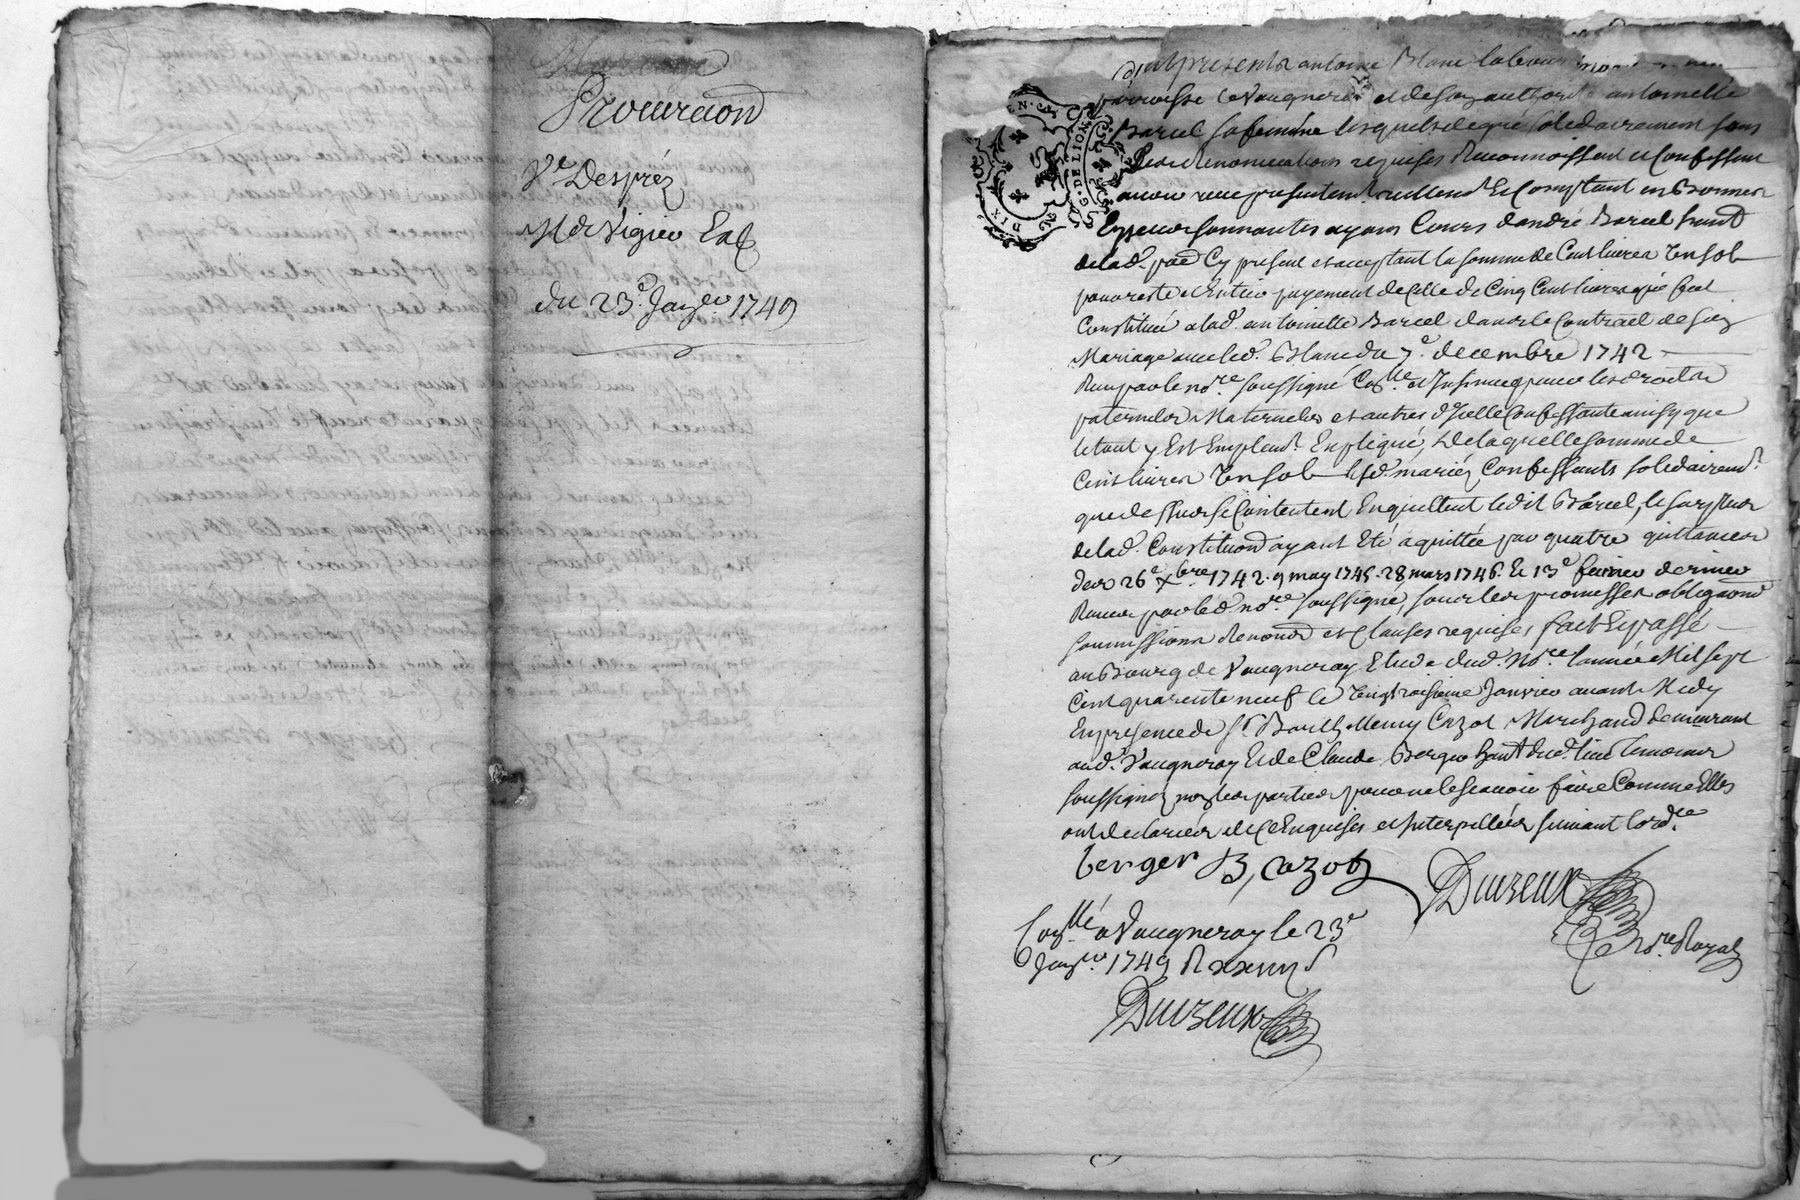 Procuraon
Ve Desprez
Mer Vigier
du 23e Janver 1749
DIX DEN. G. DE LION
present antoine Blanc laboureur
parroisse de Vaugneray et de son authorité antoinette
Barcel sa femme lesquels de gré solidairement sous
les Renonciations requises Reconnoissent et Confessent
avoir receu presentement reellement et Comptant en bonnes
Especes sonnantes ayans Cours d'andré Barcel habt
de lad. par. Cy present et acceptant la somme de Cent livres
pour reste et Entier payement de Celle de Cinq Cent livres qui fut
Constituée a lad. antoinette Barcel dans le Contract de son
Mariage avec led. Blanc du 7e decembre 1742
Receu par le nore soussigné Collé et Insinué pour les droits
paternels Maternels et autres d'Icelle Confessante ainsy que
le tout y Est Emplemt Expliqué, de laquelle somme de
Cent livres lesd. mariéz Confessants solidairemt
que dessus se Contentent En quittent ledit Barcel, le surplus
de lad. Constituon ayant Eté aquittée par quatre quittances
des 26e Xbre 1742. 9 may 1745. 28 mars 1746. Et 13e fevrier dernier
Receues par led. nore soussigné, sous les promesses obligaons
soumissions Renonon et Clauses requises fait Et passé
au Bourg de Vaugneray Etude dud. Nore l'année Mil sept
Cent quarente neuf le Vingt troisieme Janvier avant Midy
En presence de Sr Barthelemy Cozot Marchand demeurant
aud. Vaugneray Et de Claude Berger habt dud. lieu temoins
soussignez non les parties pour ne le scavoir faire Comme Elles
ont declaréés de Ce Enquises et Interpelléés suivant lordce
berger B, cozot Duizeux
nore Royal
Collé a Vaugneray le 23e
Janver 1749 R
Duizeux